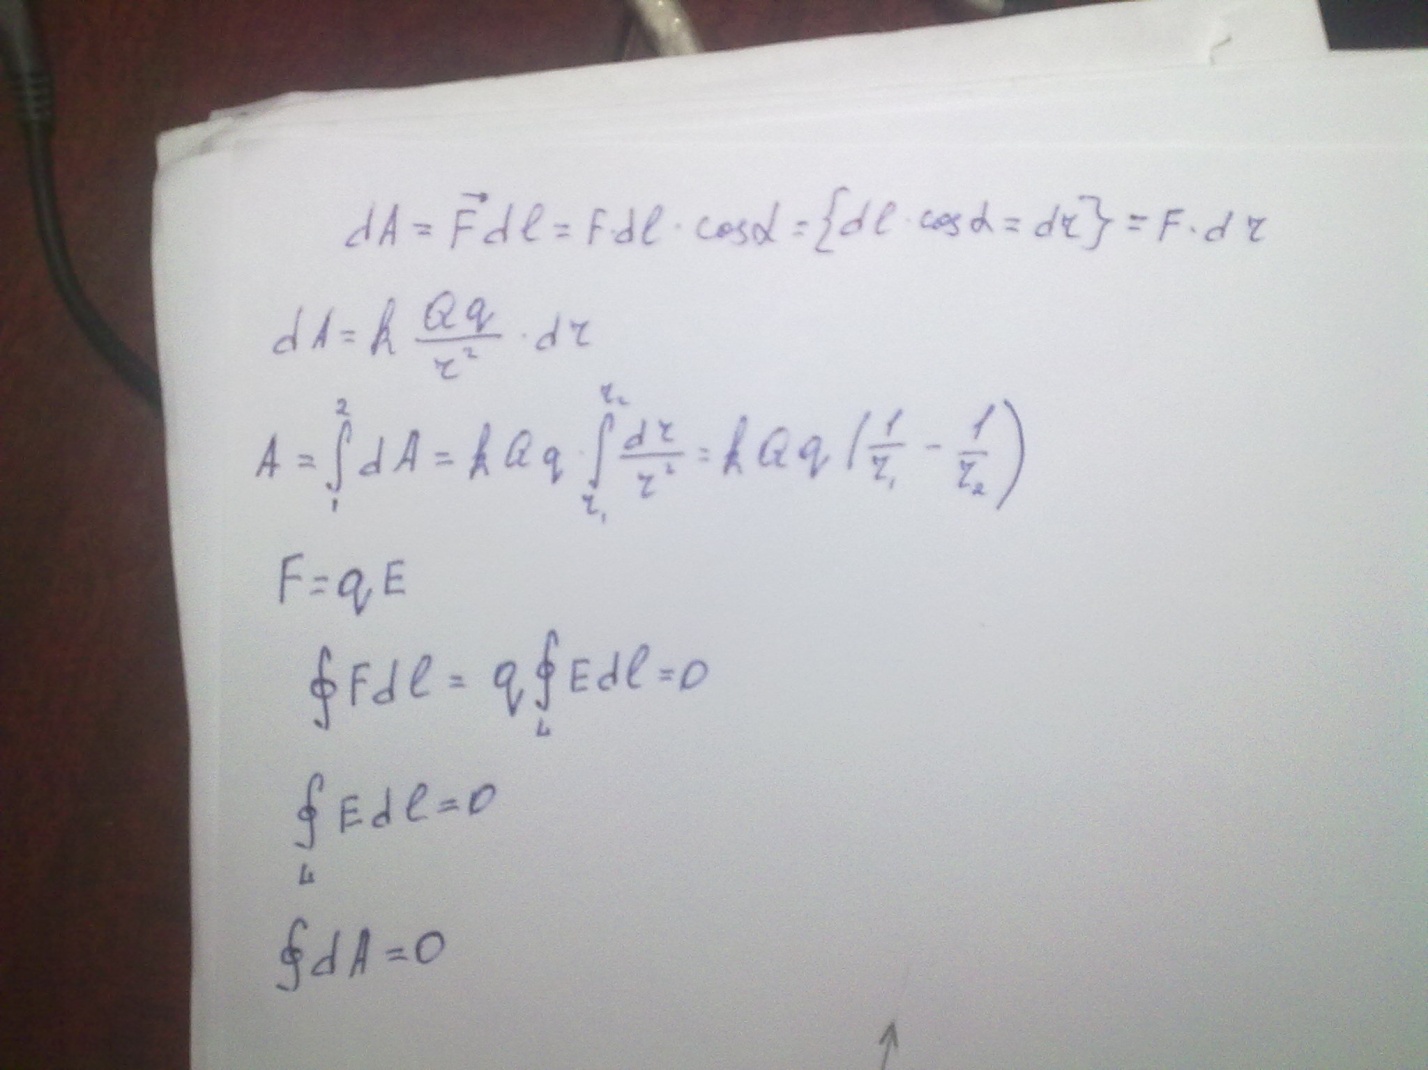 dA = F⃗dl = F·dl · cosα = {dl · cosα = dr} = F · dr
dA = k Qq/r² · dr
A = ∫₁² dA = kQq · ∫_{r₁}^{r₂} dr/r² = kQq (1/r₁ - 1/r₂)
F = qE
∮Fdl = q∮_L Edl = 0
∮_L Edl = 0
∮dA = 0